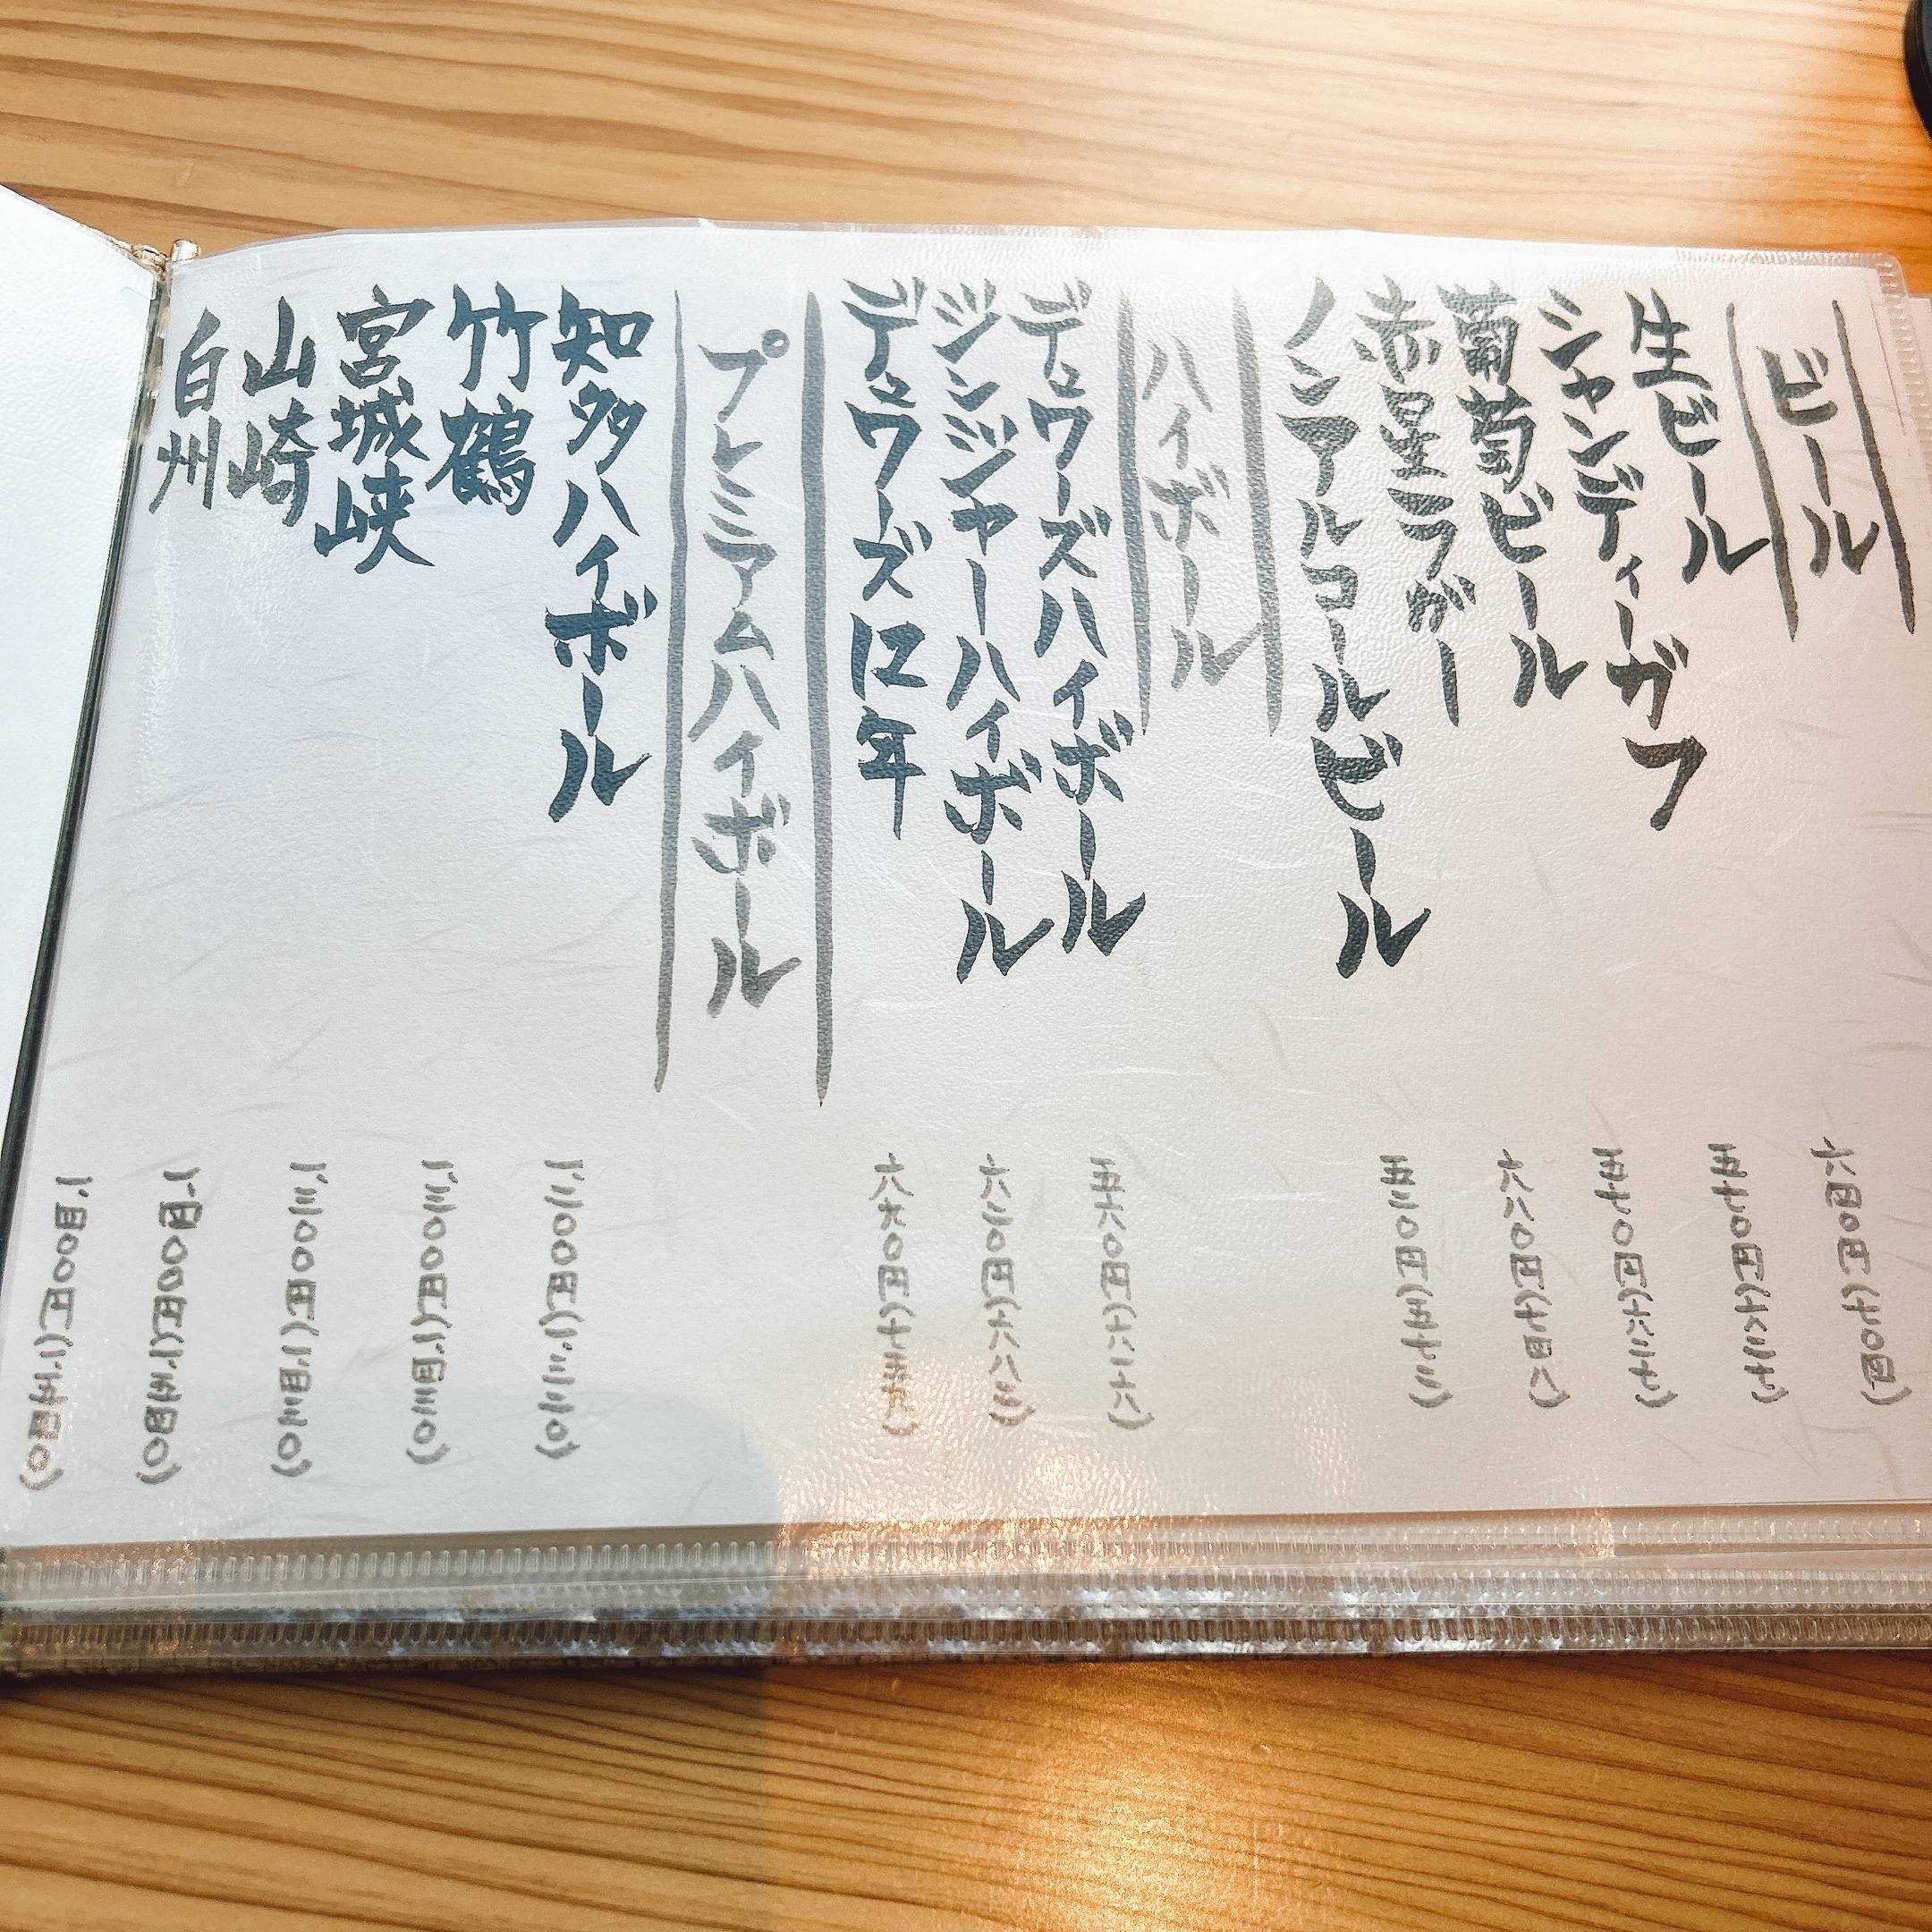 ビール
生ビール 六四〇円(七〇四)
シャンディーガフ 五七〇円(六二七)
葡萄ビール 五七〇円(六二七)
赤星ラガー 六八〇円(七四八)
ノンアルコールビール 五二〇円(五七二)
ハイボール
デュワーズハイボール 五六〇円(六一六)
ジンジャーハイボール 六二〇円(六八二)
デュワーズ12年 六九〇円(七五九)
プレミアムハイボール
知多ハイボール 一、二〇〇円(一、三二〇)
竹鶴 一、三〇〇円(一、四三〇)
宮城峡 一、三〇〇円(一、四三〇)
山崎 一、四〇〇円(一、五四〇)
白州 一、四〇〇円(一、五四〇)